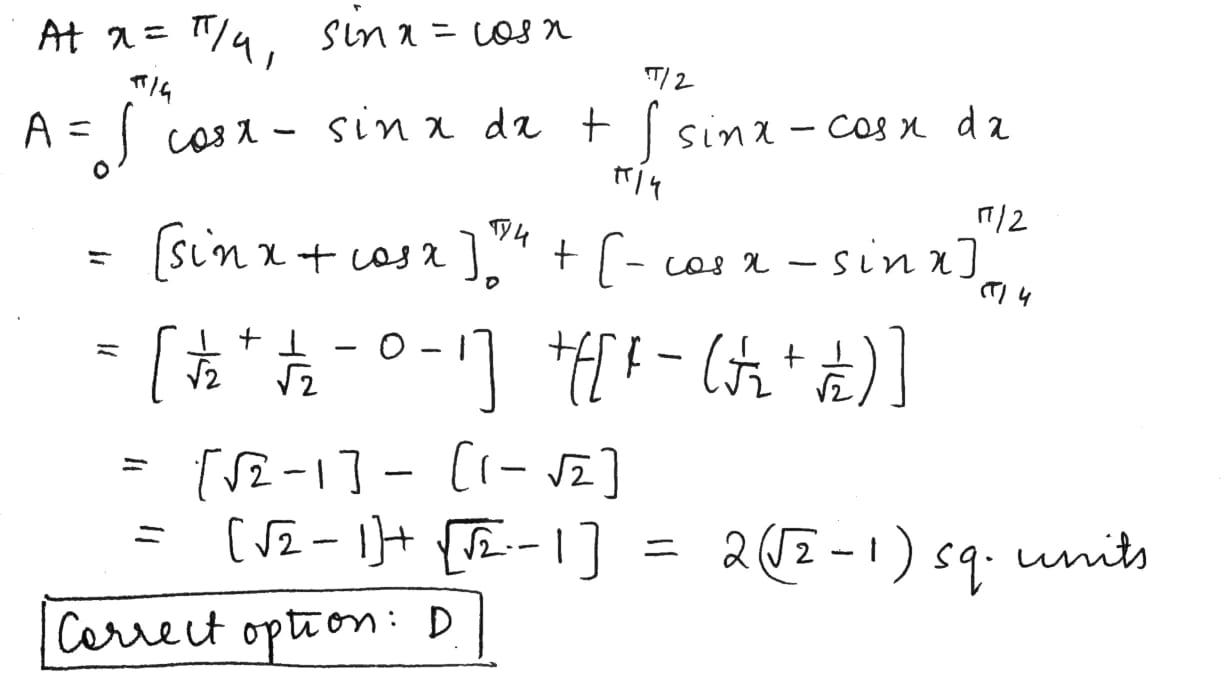 At x = π/4, sin x = cos x
A = ∫₀^{π/4} cos x − sin x dx + ∫_{π/4}^{π/2} sin x − cos x dx
= [sin x + cos x]₀^{π/4} + [− cos x − sin x]_{π/4}^{π/2}
= [1/√2 + 1/√2 − 0 − 1] + [1 − (1/√2 + 1/√2)]
= [√2 − 1] − [1 − √2]
= [√2 − 1] + [√2 − 1] = 2(√2 − 1) sq. units
Correct option: D